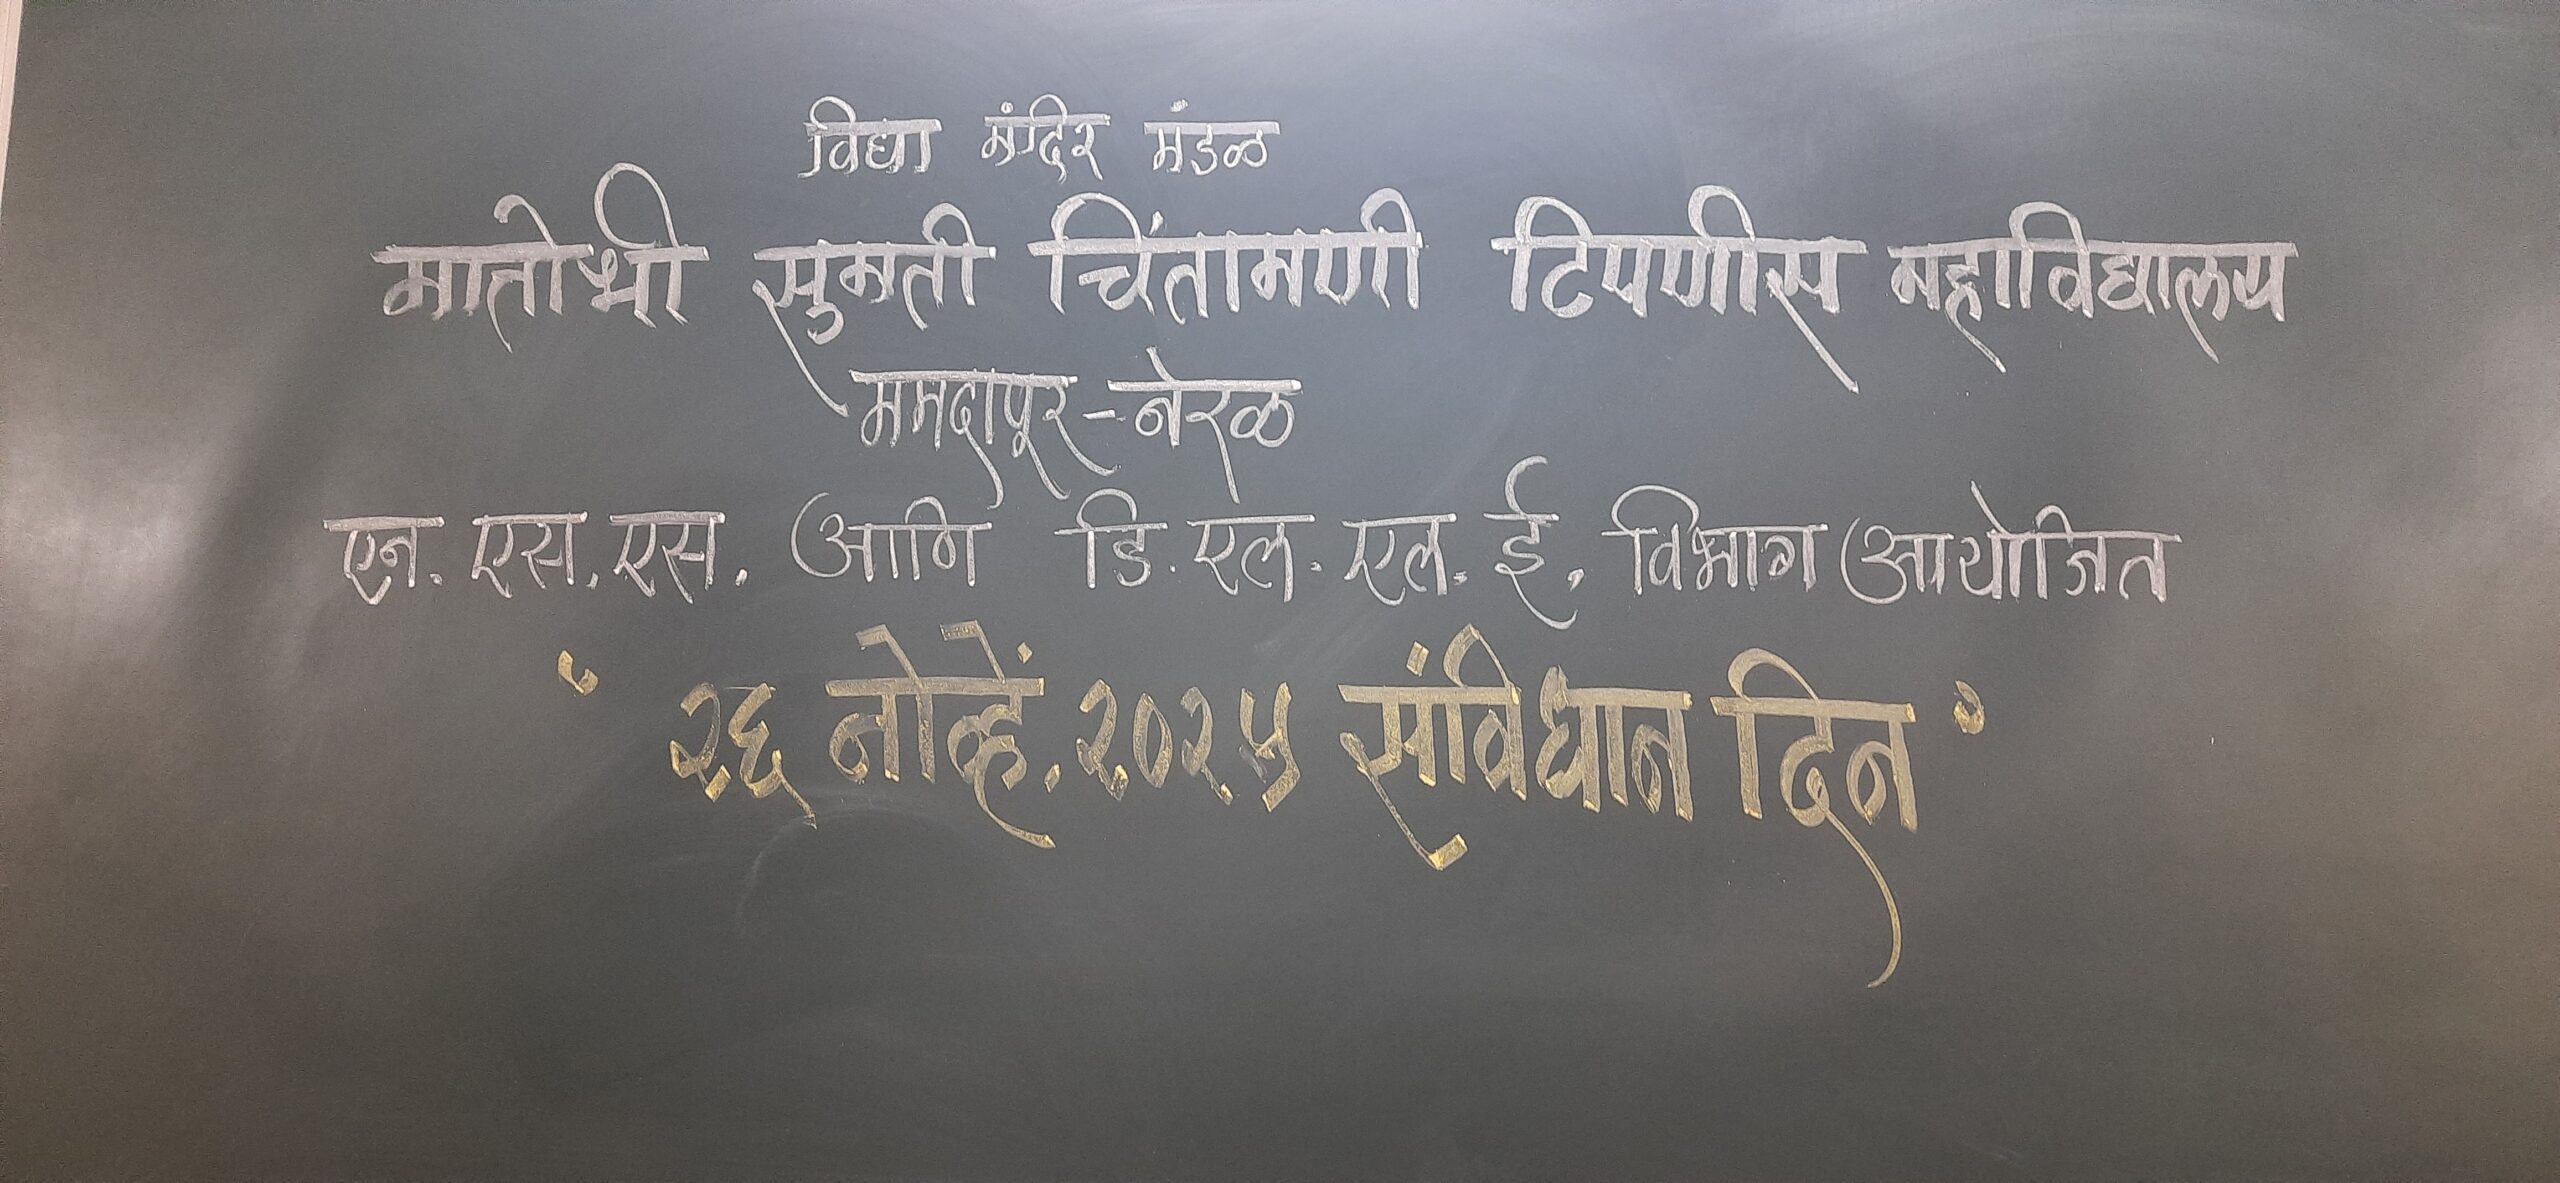 विद्या मंदिर मंडळ
मातोश्री सुमती चिंतामणी टिपणीस महाविद्यालय
ममदापूर-नेरळ
एन. एस. एस. आणि डि. एल. एल. ई. विभाग आयोजित
‘ २६ नोव्हें. २०२५ संविधान दिन ’